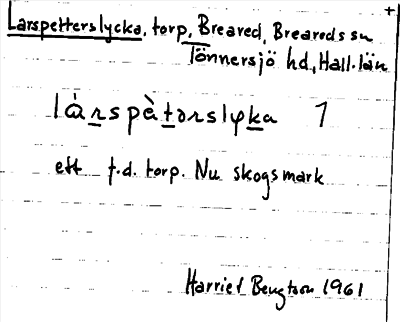 Larspetterslycka, torp, Breared, Breareds sn
Tönnersjö hd, Hall. län
làrspètərslyka 1
ett f.d. torp. Nu skogsmark
Harriet Bengtson 1961